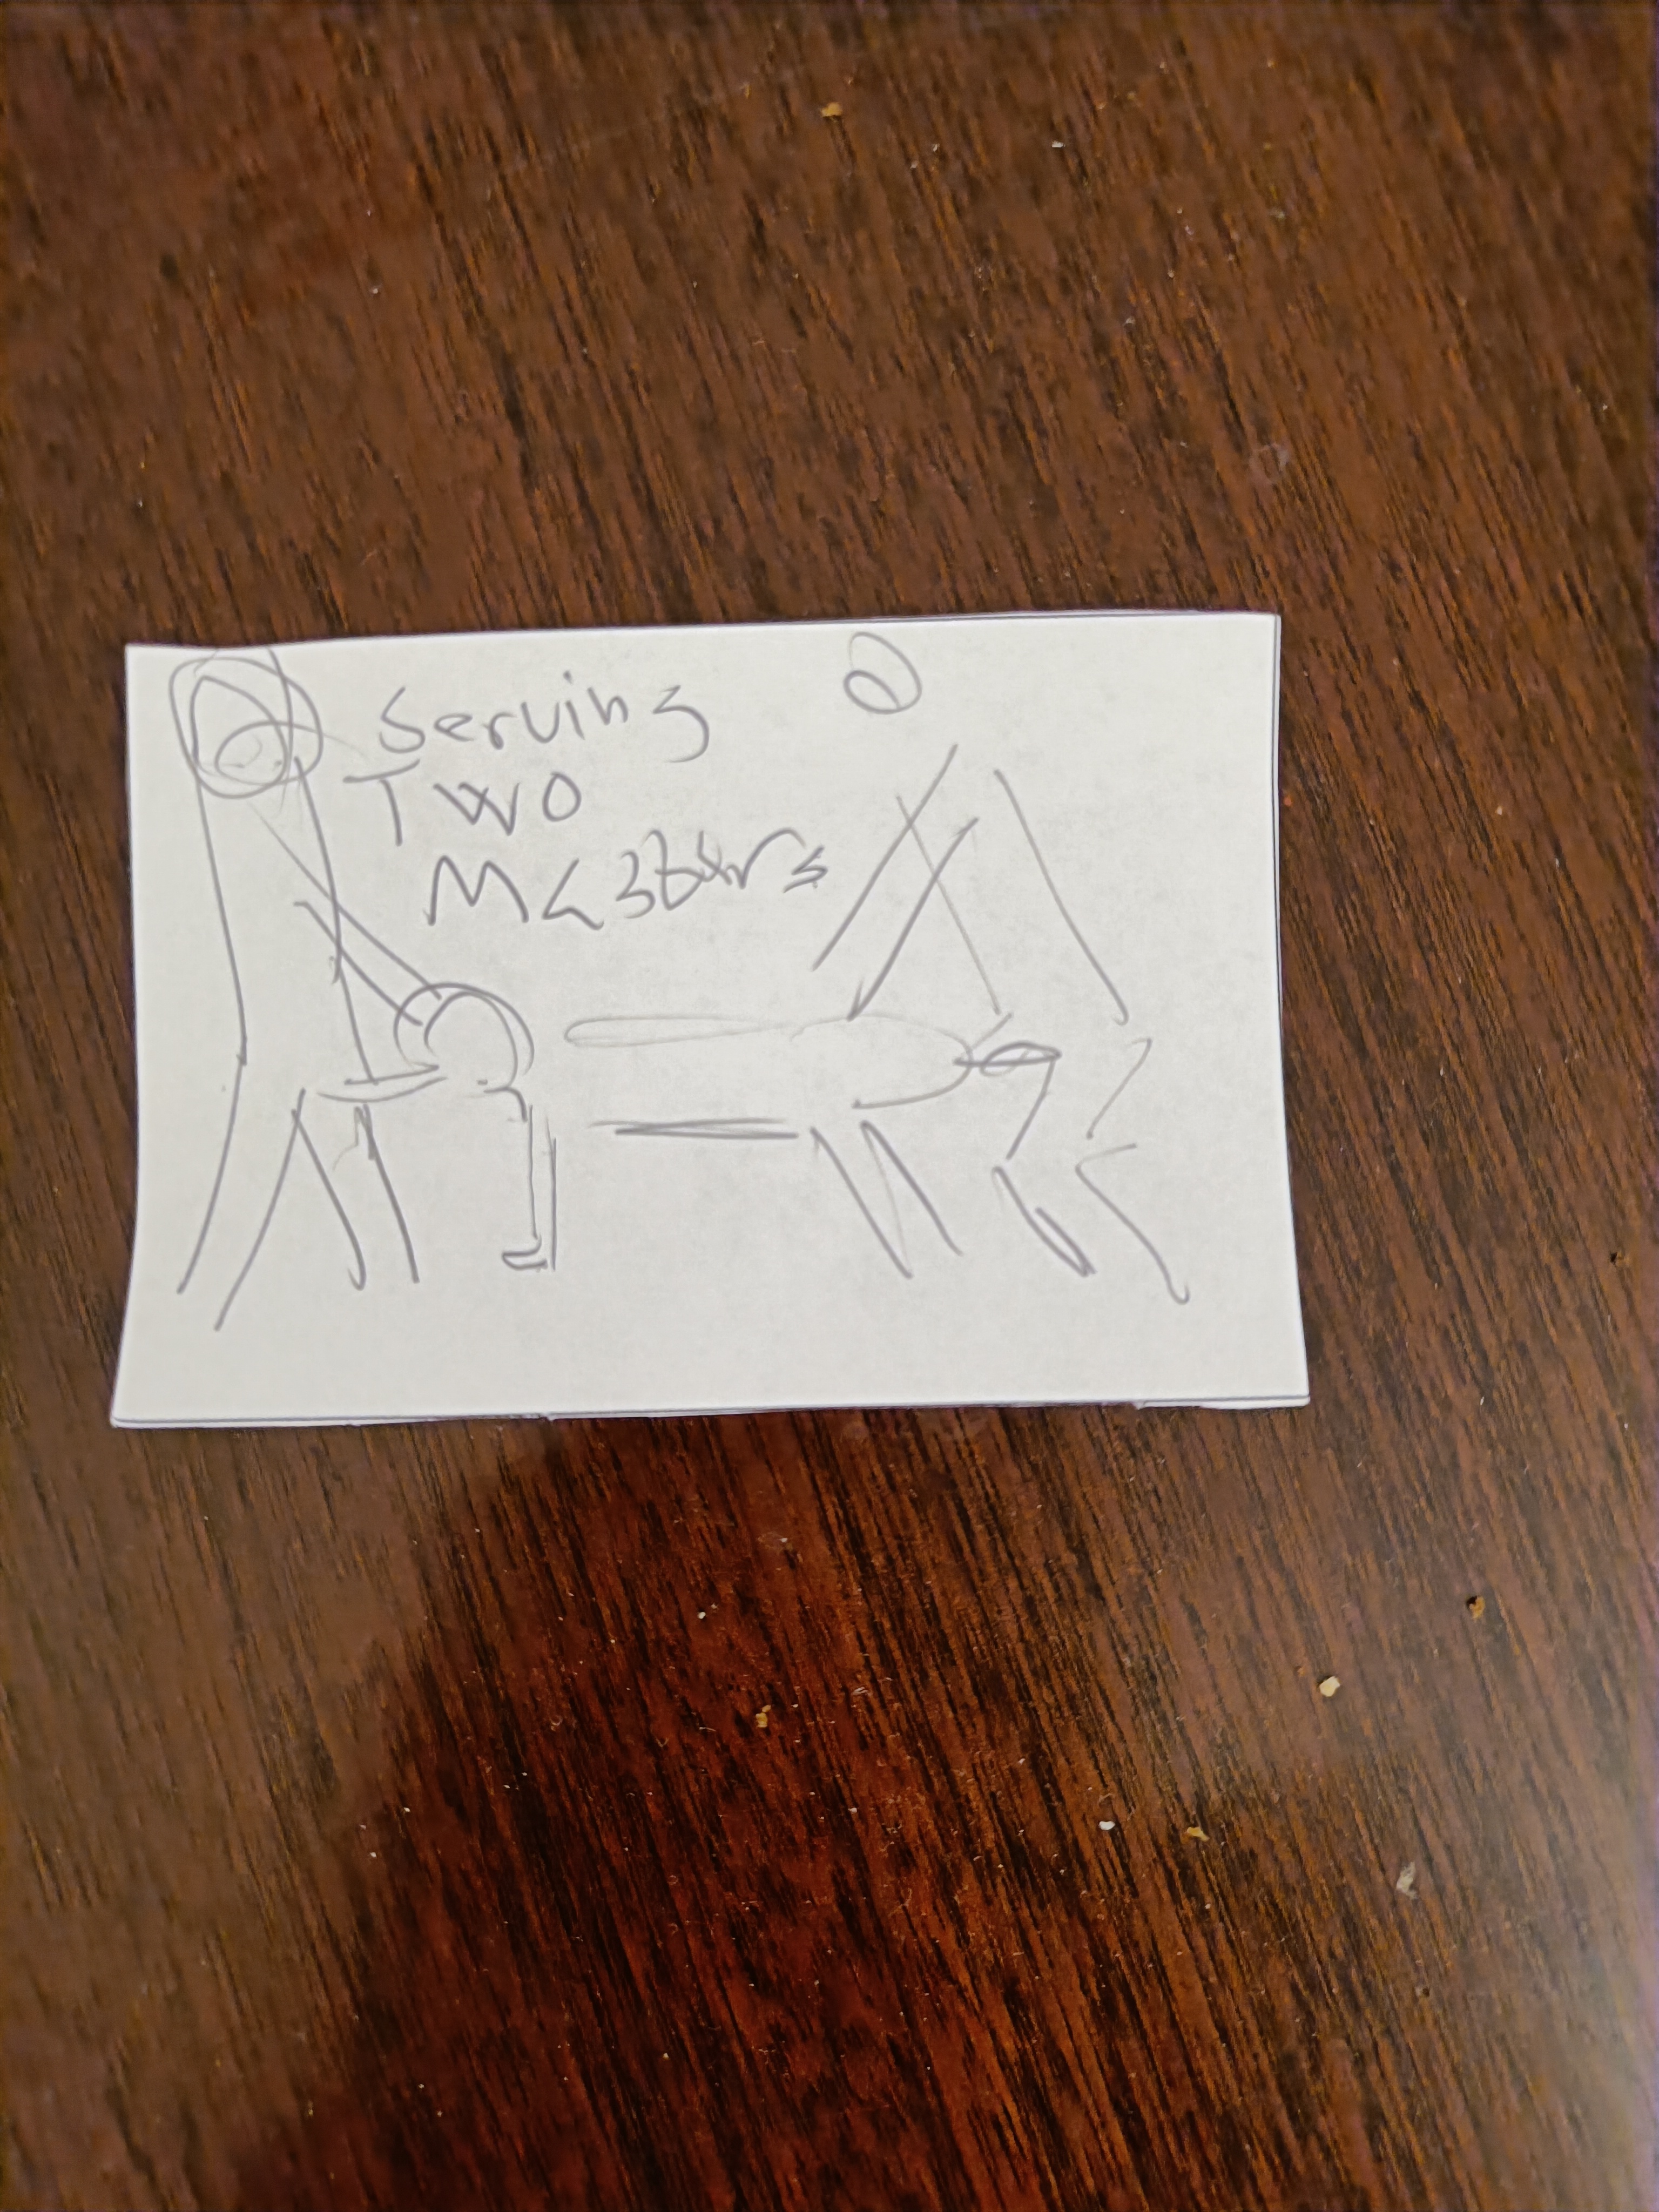 Serving
TWO
Masters